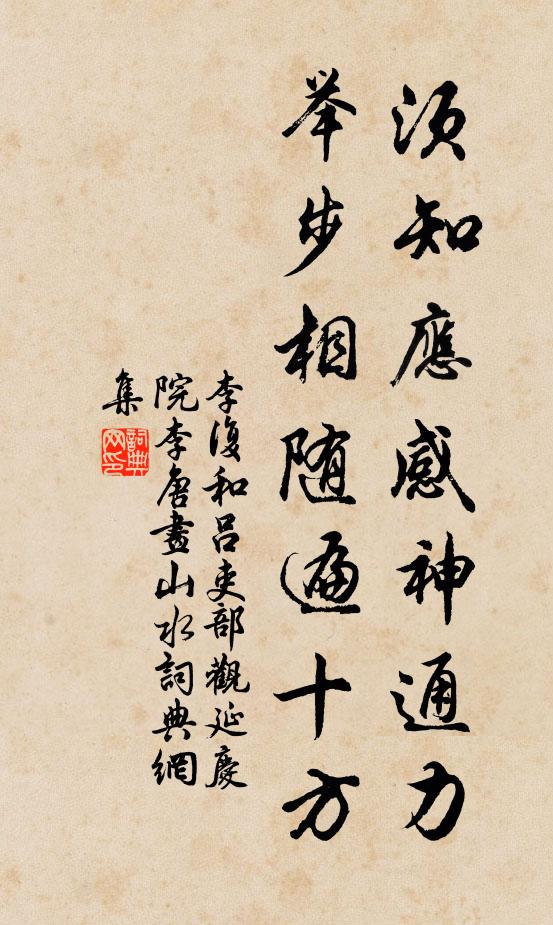 须知應感神通力
举步相随遍十方
李復和吕吏部觀延慶
院李唐畫山水詞典網
集
詞典網印